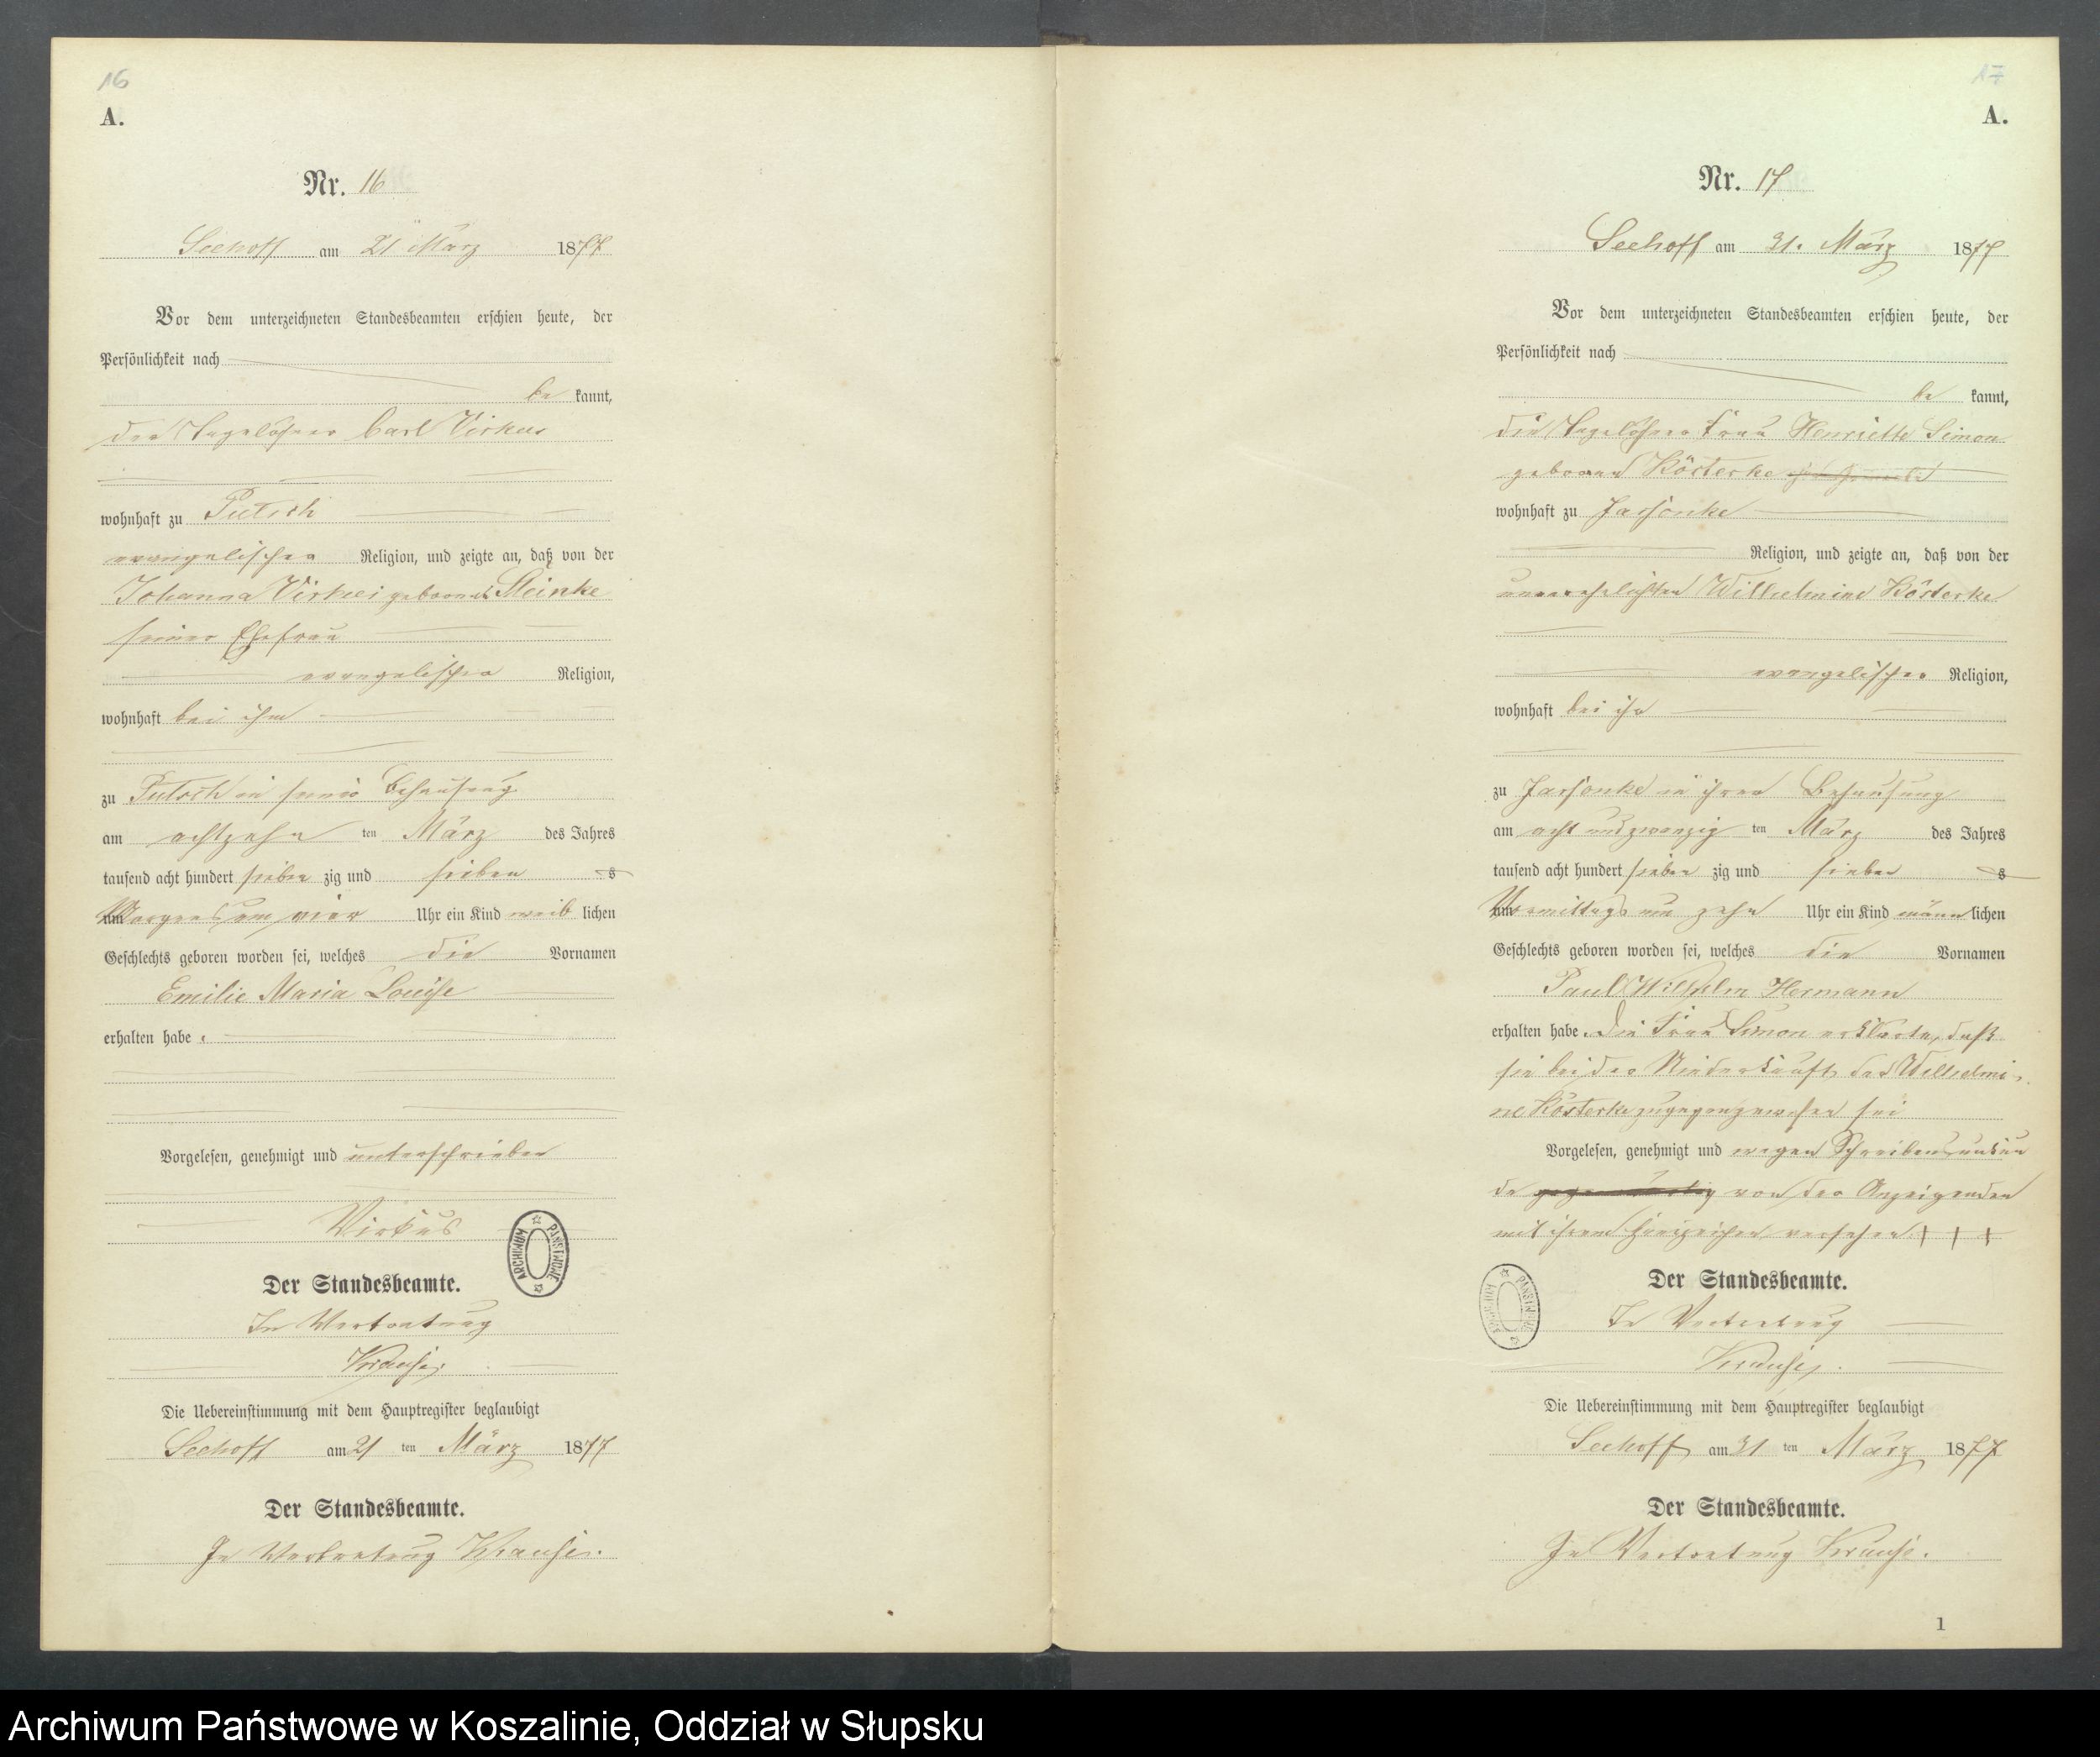 16
A.
Nr. 16
Seehoff am 21 März 1877
Vor dem unterzeichneten Standesbeamten erschien heute, der
Persönlichkeit nach
be kannt,
der Tagelöhner Carl Virkus
wohnhaft zu Putsch
evangelischer Religion, und zeigte an, daß von der
Johanna Virkus geborene Steinke
seiner Ehefrau
evangelischer Religion,
wohnhaft bei ihm
zu Putsch in seiner Behausung
am achtzehn ten März des Jahres
tausend acht hundert sieben zig und sieben
Morgens um vier Uhr ein Kind weib lichen
Geschlechts geboren worden sei, welches die Vornamen
Emilie Maria Louise
erhalten habe.
Vorgelesen, genehmigt und unterschrieben
Virkus
ARCHIWUM PAŃSTWOWE
Der Standesbeamte.
In Vertretung
Krause.
Die Uebereinstimmung mit dem Hauptregister beglaubigt
Seehoff am 21 ten März 1877
Der Standesbeamte.
In Vertretung Krause.
17
A.
Nr. 17
Seehoff am 31. März 1877
Vor dem unterzeichneten Standesbeamten erschien heute, der
Persönlichkeit nach
be kannt,
die Tagelöhner Frau Henriette Simon
geborene Kösterke
wohnhaft zu Jassonke
Religion, und zeigte an, daß von der
unverehelichten Wilhelmine Kösterke
evangelischer Religion,
wohnhaft bei ihr
zu Jassonke in ihrer Behausung
am acht und zwanzig ten März des Jahres
tausend acht hundert sieben zig und sieben
Vormittags um zehn Uhr ein Kind männ lichen
Geschlechts geboren worden sei, welches die Vornamen
Paul Wilhelm Hermann
erhalten habe. Die Frau Simon erklärte, daß
sie bei der Niederkunft der Wilhelmi-
ne Kösterke zugegen gewesen sei
Vorgelesen, genehmigt und wegen Schreibensunkun
de von der Anzeigenden
mit ihrem Handzeichen versehen + + +
ARCHIWUM PAŃSTWOWE
Der Standesbeamte.
In Vertretung
Krause.
Die Uebereinstimmung mit dem Hauptregister beglaubigt
Seehoff am 31 ten März 1877
Der Standesbeamte.
In Vertretung Krause.
1
Archiwum Państwowe w Koszalinie, Oddział w Słupsku